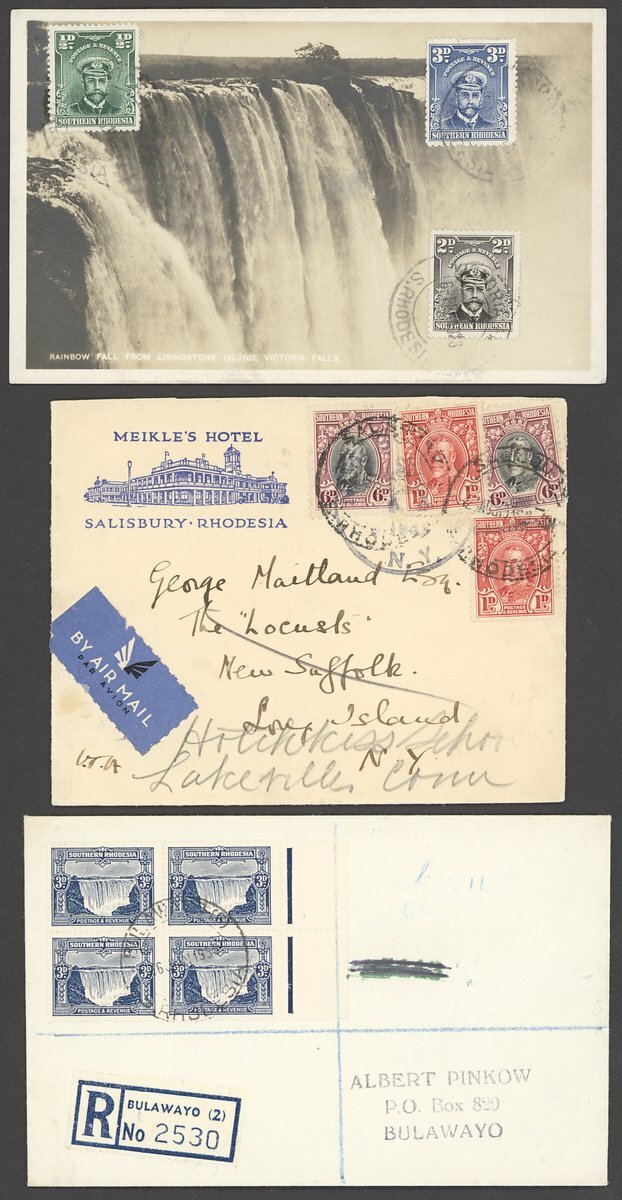 ½D. ½D.
POSTAGE & REVENUE
SOUTHERN RHODESIA
3D. 3D.
POSTAGE & REVENUE
SOUTHERN RHODESIA
2D. 2D.
POSTAGE & REVENUE
SOUTHERN RHODESIA
S. RHODESIA
RAINBOW FALL FROM LIVINGSTONE ISLAND, VICTORIA FALLS
MEIKLE'S HOTEL
SALISBURY · RHODESIA
SOUTHERN RHODESIA
6D. 6D.
SOUTHERN RHODESIA
1D. 1D.
SOUTHERN RHODESIA
6D. 6D.
SOUTHERN RHODESIA
1D. 1D.
POSTAGE & REVENUE
N.Y.
George Maitland Esq.
The "Locusts"
New Suffolk.
Long Island
N Y.
U.S.A
BY AIR MAIL
PAR AVION
Hotchkiss School
Lakeville, Conn
SOUTHERN RHODESIA
3D. 3D.
POSTAGE & REVENUE
SOUTHERN RHODESIA
3D. 3D.
POSTAGE & REVENUE
SOUTHERN RHODESIA
3D. 3D.
POSTAGE & REVENUE
SOUTHERN RHODESIA
3D. 3D.
POSTAGE & REVENUE
R BULAWAYO (2)
No 2530
ALBERT PINKOW
P.O. Box 829
BULAWAYO